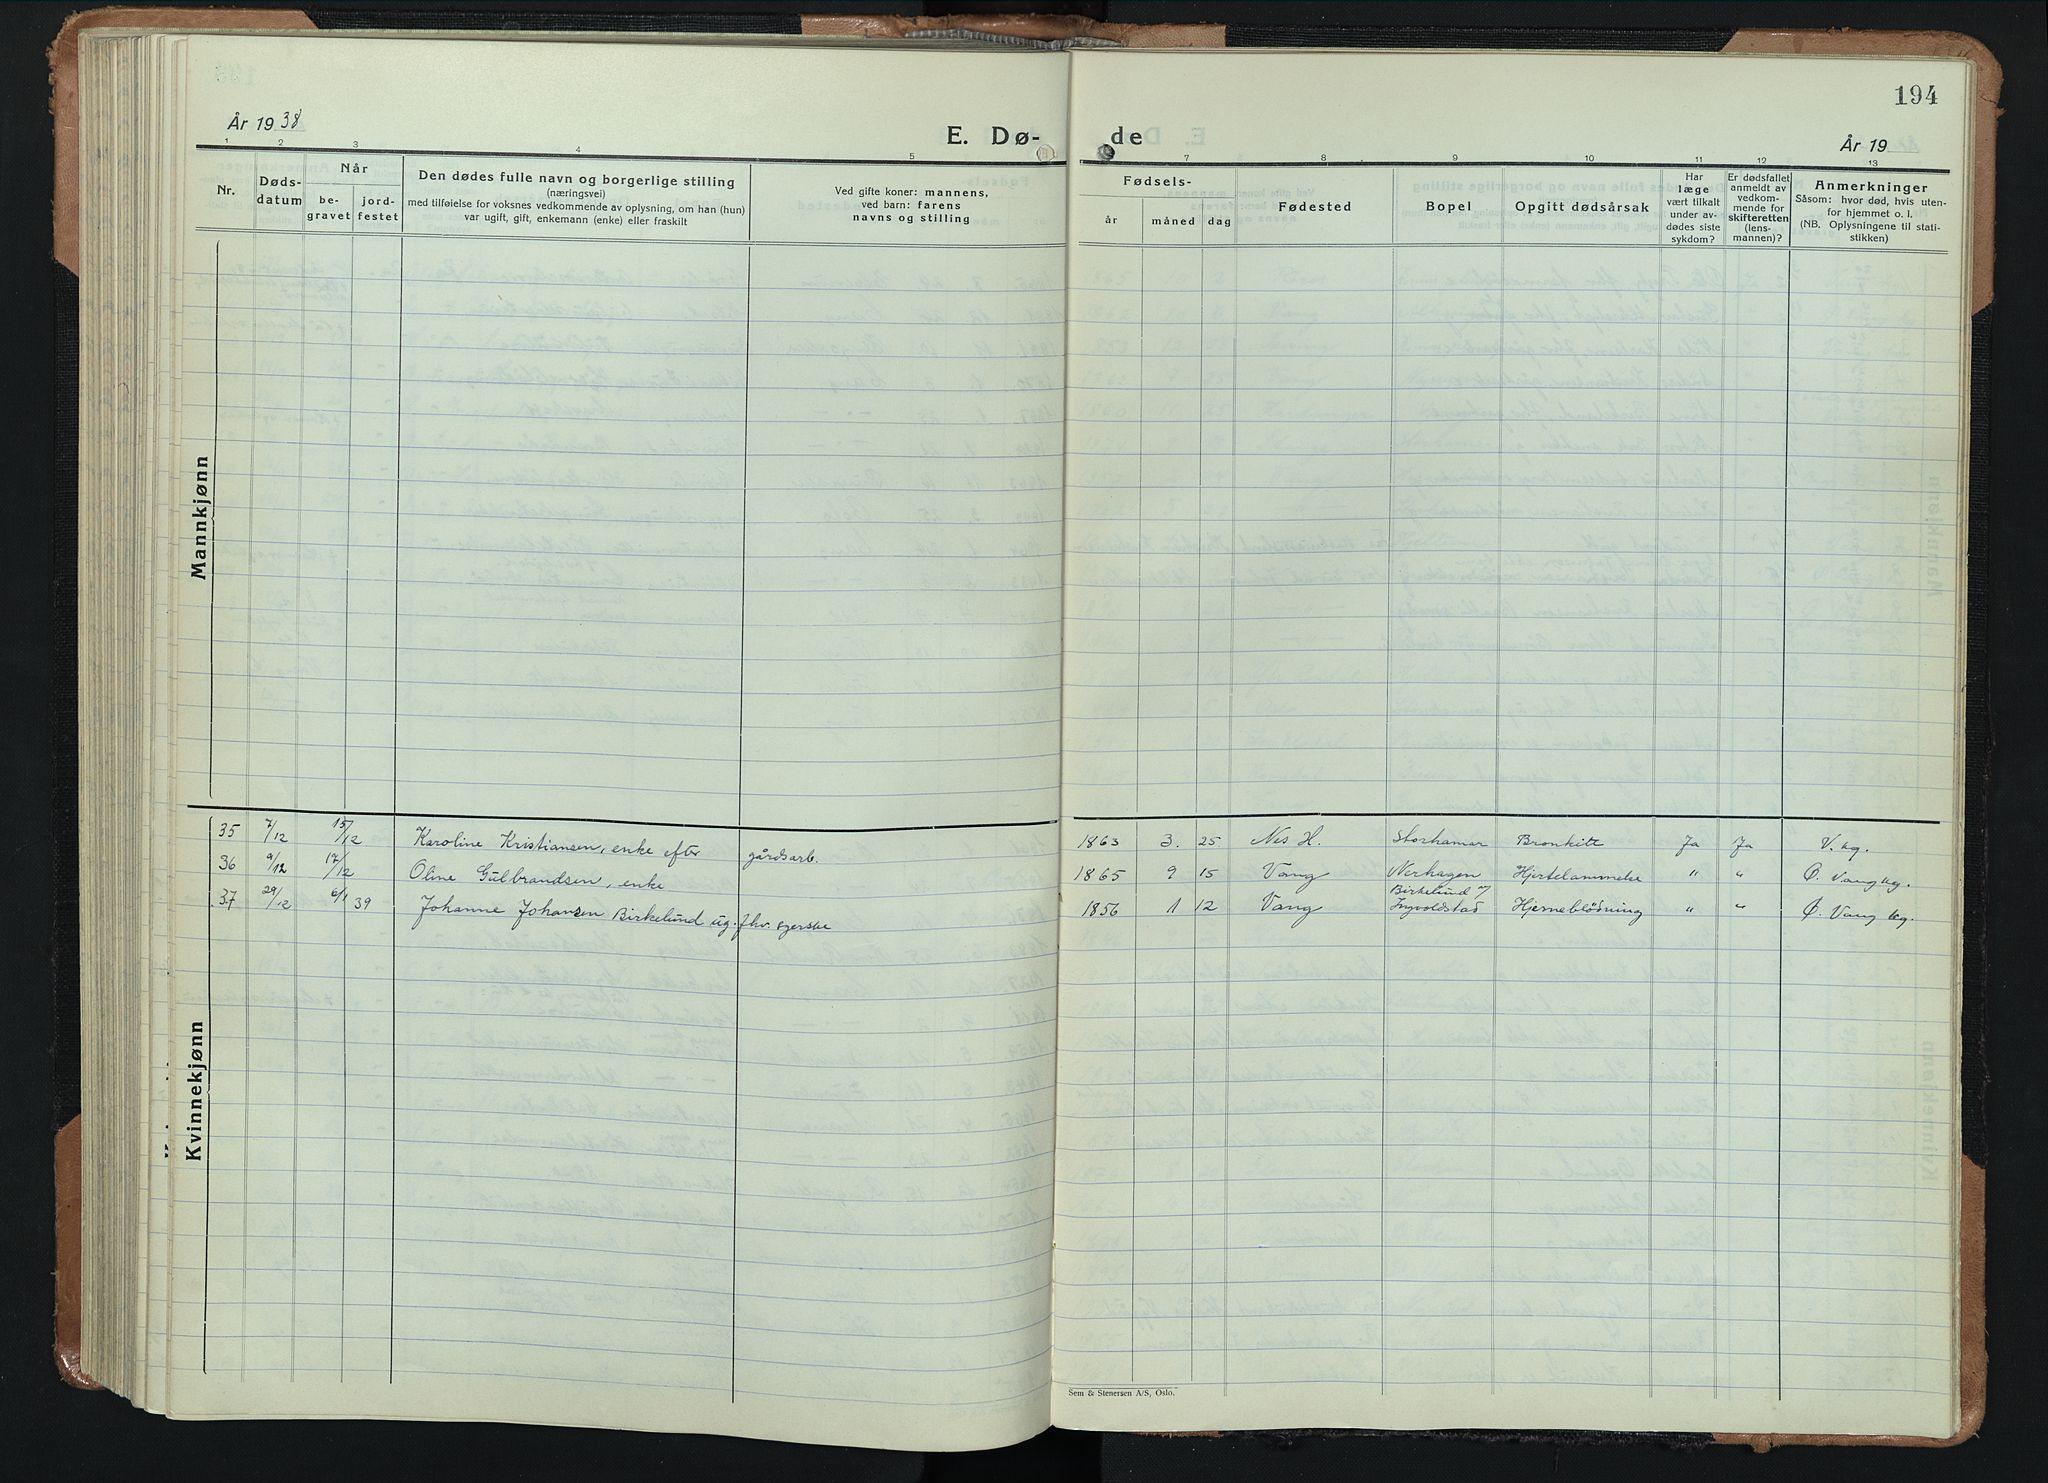 År 19 38
E. Dø-
de
194
År 19
1 2 3 4 5 7 8 9 10 11 12 13
Nr.
Døds-
datum
Når
be-
gravet
jord-
festet
Den dødes fulle navn og borgerlige stilling
(næringsvei)
med tilføielse for voksnes vedkommende av oplysning, om han (hun)
var ugift, gift, enkemann (enke) eller fraskilt
Ved gifte koner: mannens,
ved barn: farens
navns og stilling
Fødsels-
år måned dag
Fødested
Bopel
Opgitt dødsårsak
Har
læge
vært tilkalt
under av-
dødes siste
sykdom?
Er dødsfallet
anmeldt av
vedkom-
mende for
skifteretten
(lens-
mannen)?
Anmerkninger
Såsom: hvor død, hvis uten-
for hjemmet o. l.
(NB. Oplysningene til stati-
stikken)
Mannkjønn
Kvinnekjønn
35 7/12 15/12 Karoline Kristiansen, enke efter gårdsarb. 1863 3. 25 Nes H. Storhamar Bronkitt Ja Ja V. kg.
36 9/12 17/12 Oline Gulbrandsen, enke 1865 9 15 Vang Nerhagen Hjertelammelse " " Ø. Vang kg.
37 29/12 6/1 39 Johanne Johansen Birkelund ug. fhv. syerske 1856 11 12 Vang Birkelund u/ Ingvoldstad Hjerneblödning " " Ø. Vang kg.
Sem & Stenersen A/S, Oslo.